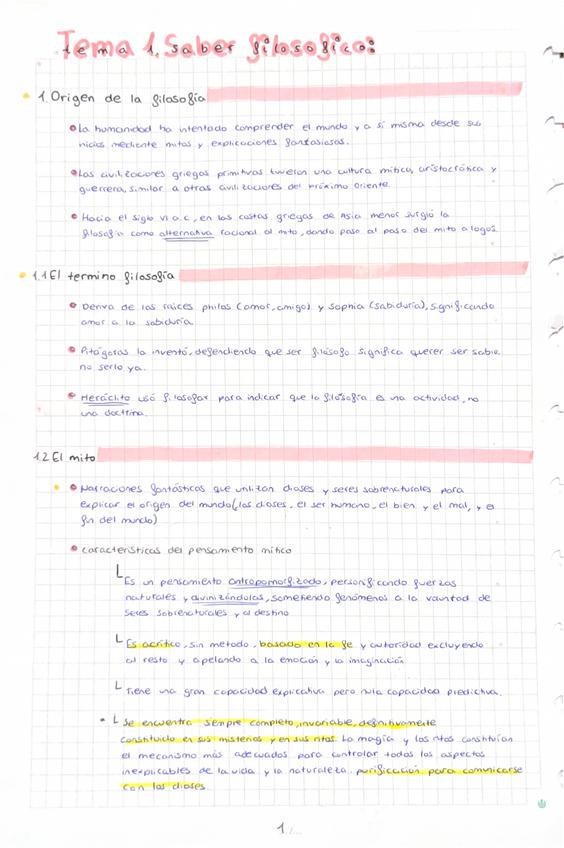 Tema 1. Saber filosofico:
1. Origen de la filosofía
La humanidad ha intentado comprender el mundo y a sí misma desde sus
nicios mediente mitos y explicaciones fantasiosas.
Las civilizaciones griegas primitivas tuvieron una cultura mítica, aristocrática y
guerrera, similar a otras civilizaciones del Próximo Oriente.
Hacia el siglo VI a.c, en las costas griegas de Asia menor surgió la
filosofía como alternativa racional al mito, dando paso al paso del mito a logos.
1.1 El termino filosofía
Deriva de las raíces philos (amor, amigo) y Sophia (sabiduría), significando
amor a la sabiduría.
Pitágoras la inventó, defendiendo que ser filósofo significa querer ser sabio,
no serlo ya.
Heráclito usó filosofar para indicar que la filosofía es una actividad, no
una doctrina.
1.2 El mito
Narraciones fantásticas que utilizan dioses y seres sobrenaturales para
explicar el origen del mundo (los dioses, el ser humano, el bien y el mal, y el
fin del mundo)
Características del pensamiento mítico
Es un pensamiento antropomorfizado, personificando fuerzas
naturales y divinizándolas, sometiendo fenómenos a la vauntad de
seres sobrenaturales y al destino.
Es acrítico, sin metodo, basado en la fe y autoridad excluyendo
al resto y apelando a la emoción y la imaginación
Tiene una gran capacidad explicativa pero nula capacidad predictiva.
Se encuentra siempre completo, invariable, definitivamente
constituido en sus misterios y en sus ritos. La magia y los ritos constituían
el mecanismo más adecuados para controlar todos los aspectos
inexplicables de la vida y la naturaleza. purificación para comunicarse
con los dioses.
1